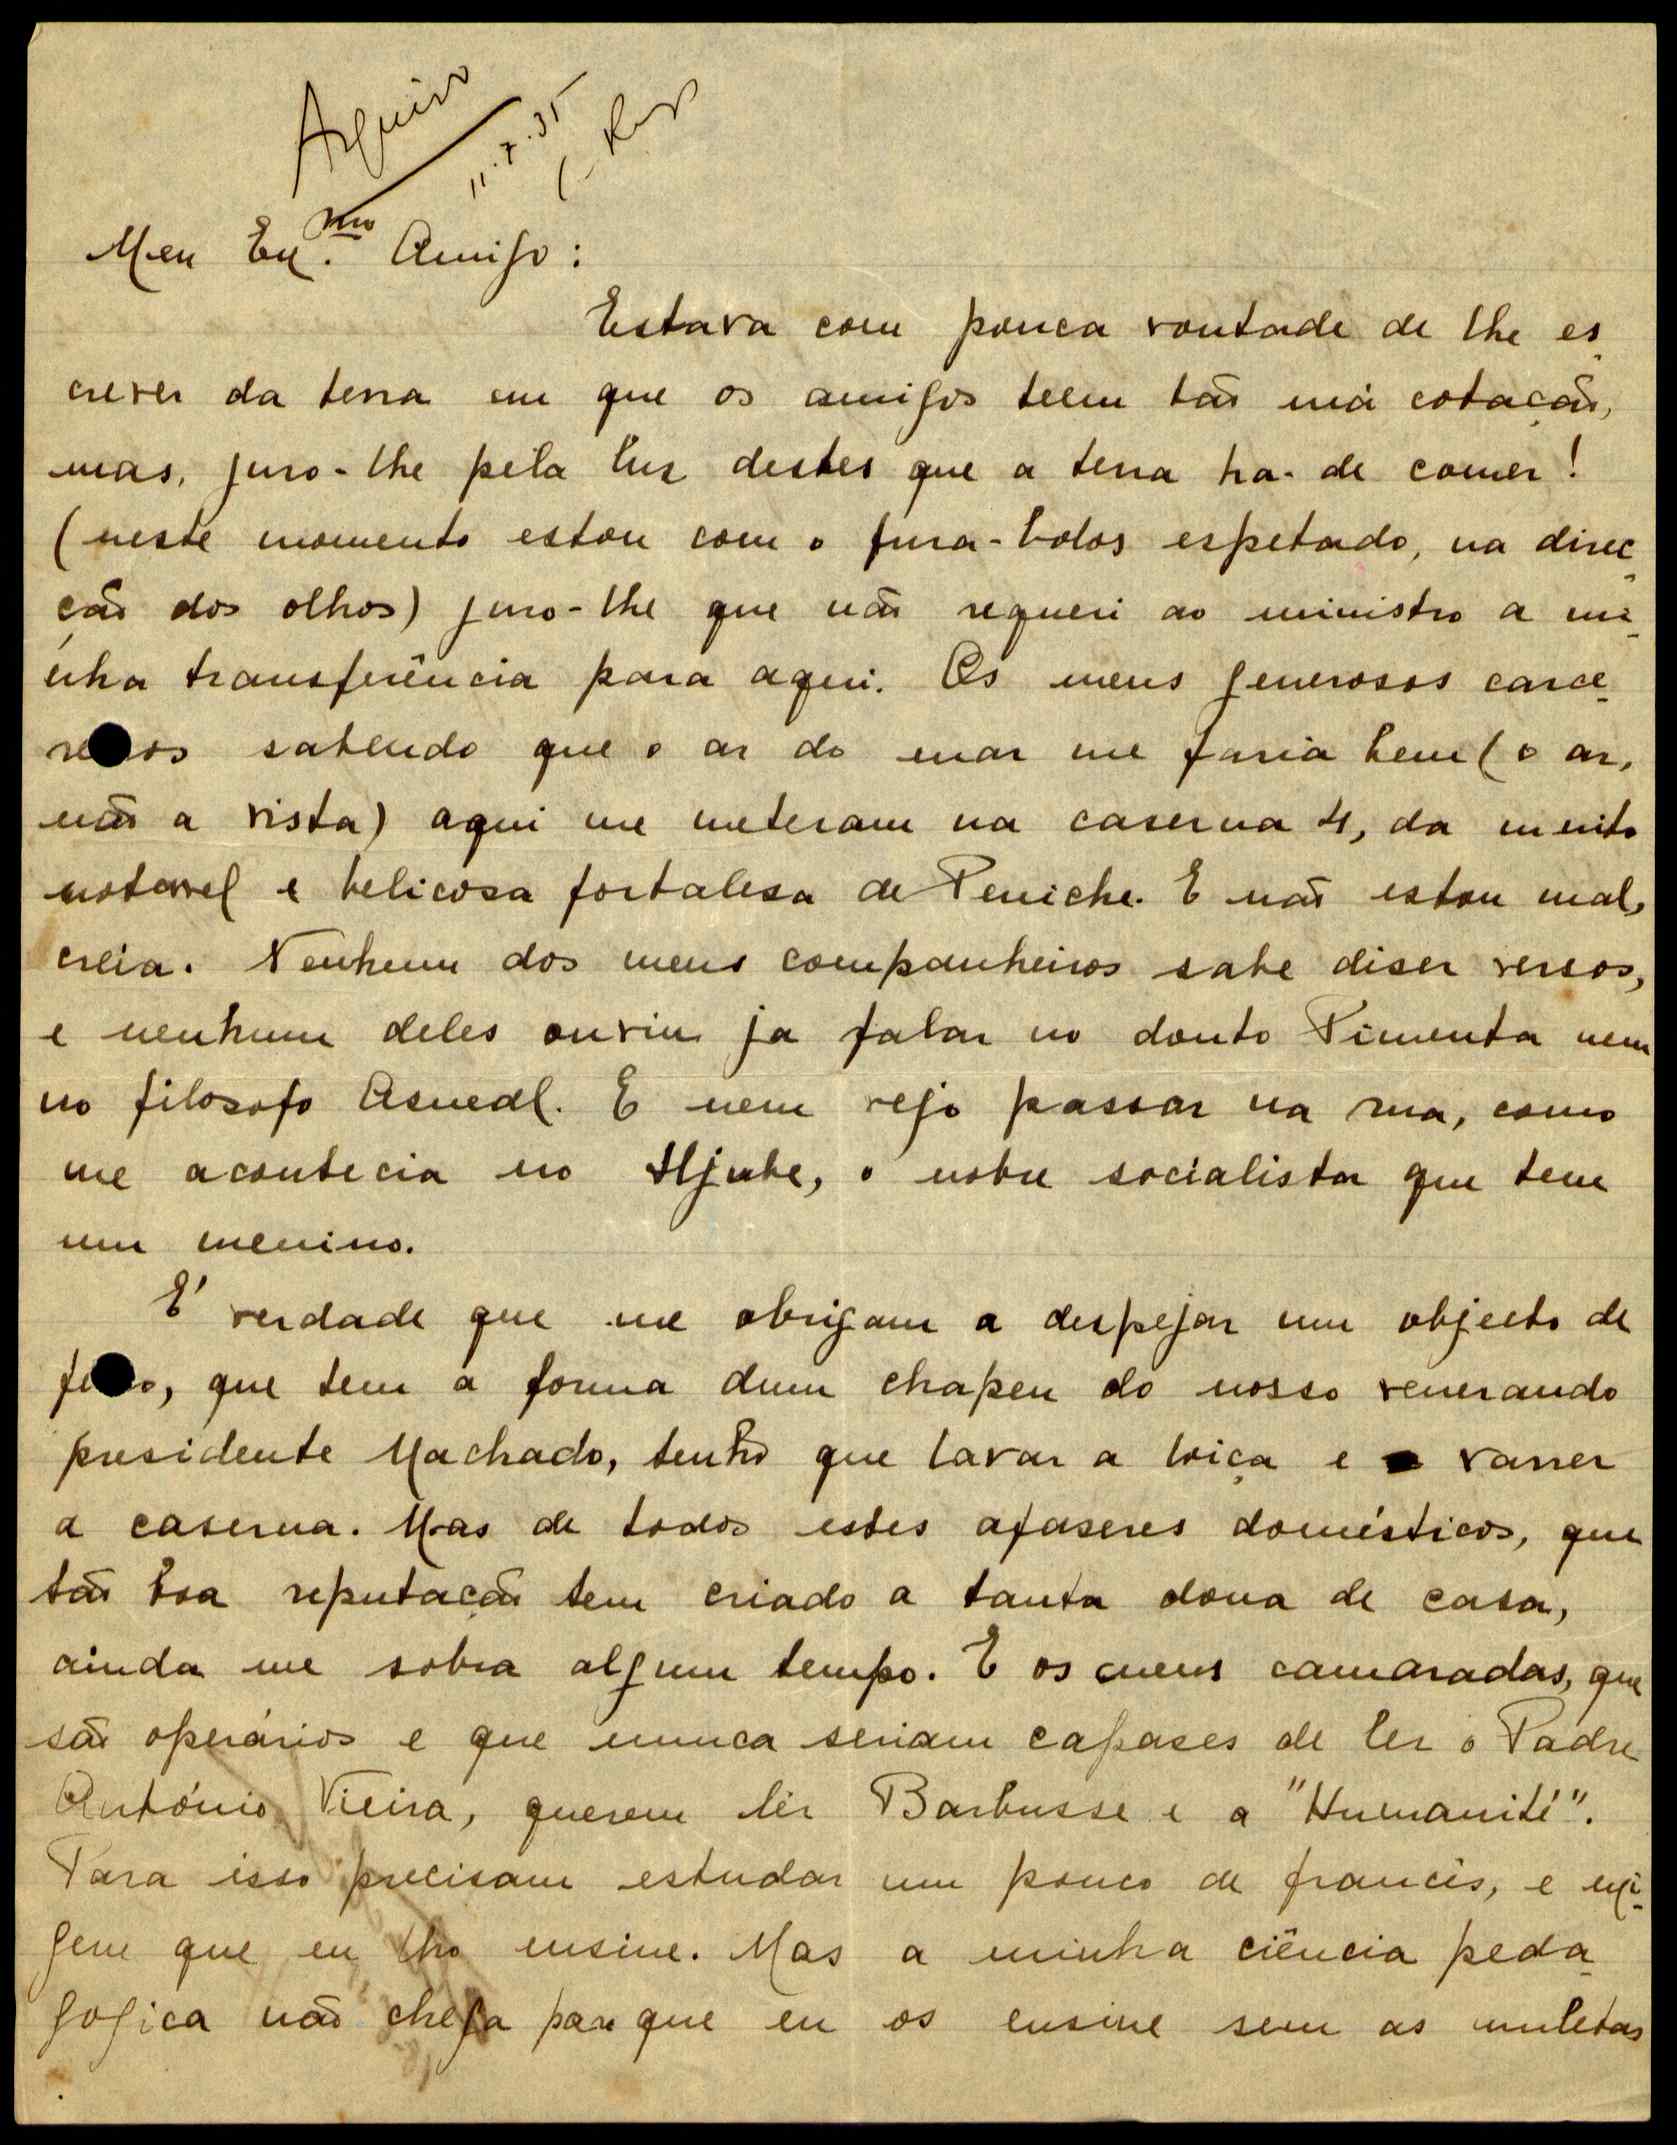 Arquivo
11.7.35
Meu Ex.mo Amigo:
Estava com pouca vontade de lhe es-
crever da terra em que os amigos teem tão má cotação,
mas, juro-lhe pela luz destes que a terra ha-de comer!
(neste momento estou com o fura-bolos espetado, na direc-
ção dos olhos) juro-lhe que não requeri ao ministro a mi-
nha transferência para aqui. Os meus generosos carce-
re os sabendo que o ar do mar me faria bem (o ar,
não a vista) aqui me meteram na caserna 4, da muito
notavel e belicosa fortalesa de Peniche. E não estou mal,
creia. Nenhum dos meus companheiros sabe diser versos,
e nenhum deles ouviu ja falar no douto Pimenta nem
no filosofo Asnedl. E nem vejo passar na rua, como
me acontecia no Aljube, o nobre socialista que tem
um menino.
E' verdade que me obrigam a despejar um objecto de
fe o, que tem a forma dum chapeu do nosso venerando
presidente Machado, tenho que lavar a loiça e varrer
a caserna. Mas de todos estes afaseres domésticos, que
tão boa reputação tem criado a tanta dona de casa,
ainda me sobra algum tempo. E os meus camaradas, que
são operários e que nunca seriam capases de ler o Padre
António Vieira, querem lêr Barbusse e a "Humanité".
Para isso precisam estudar um pouco de francês, e exi-
gem que eu lho ensine. Mas a minha ciência peda-
gogica não chega para que eu os ensine sem as muletas